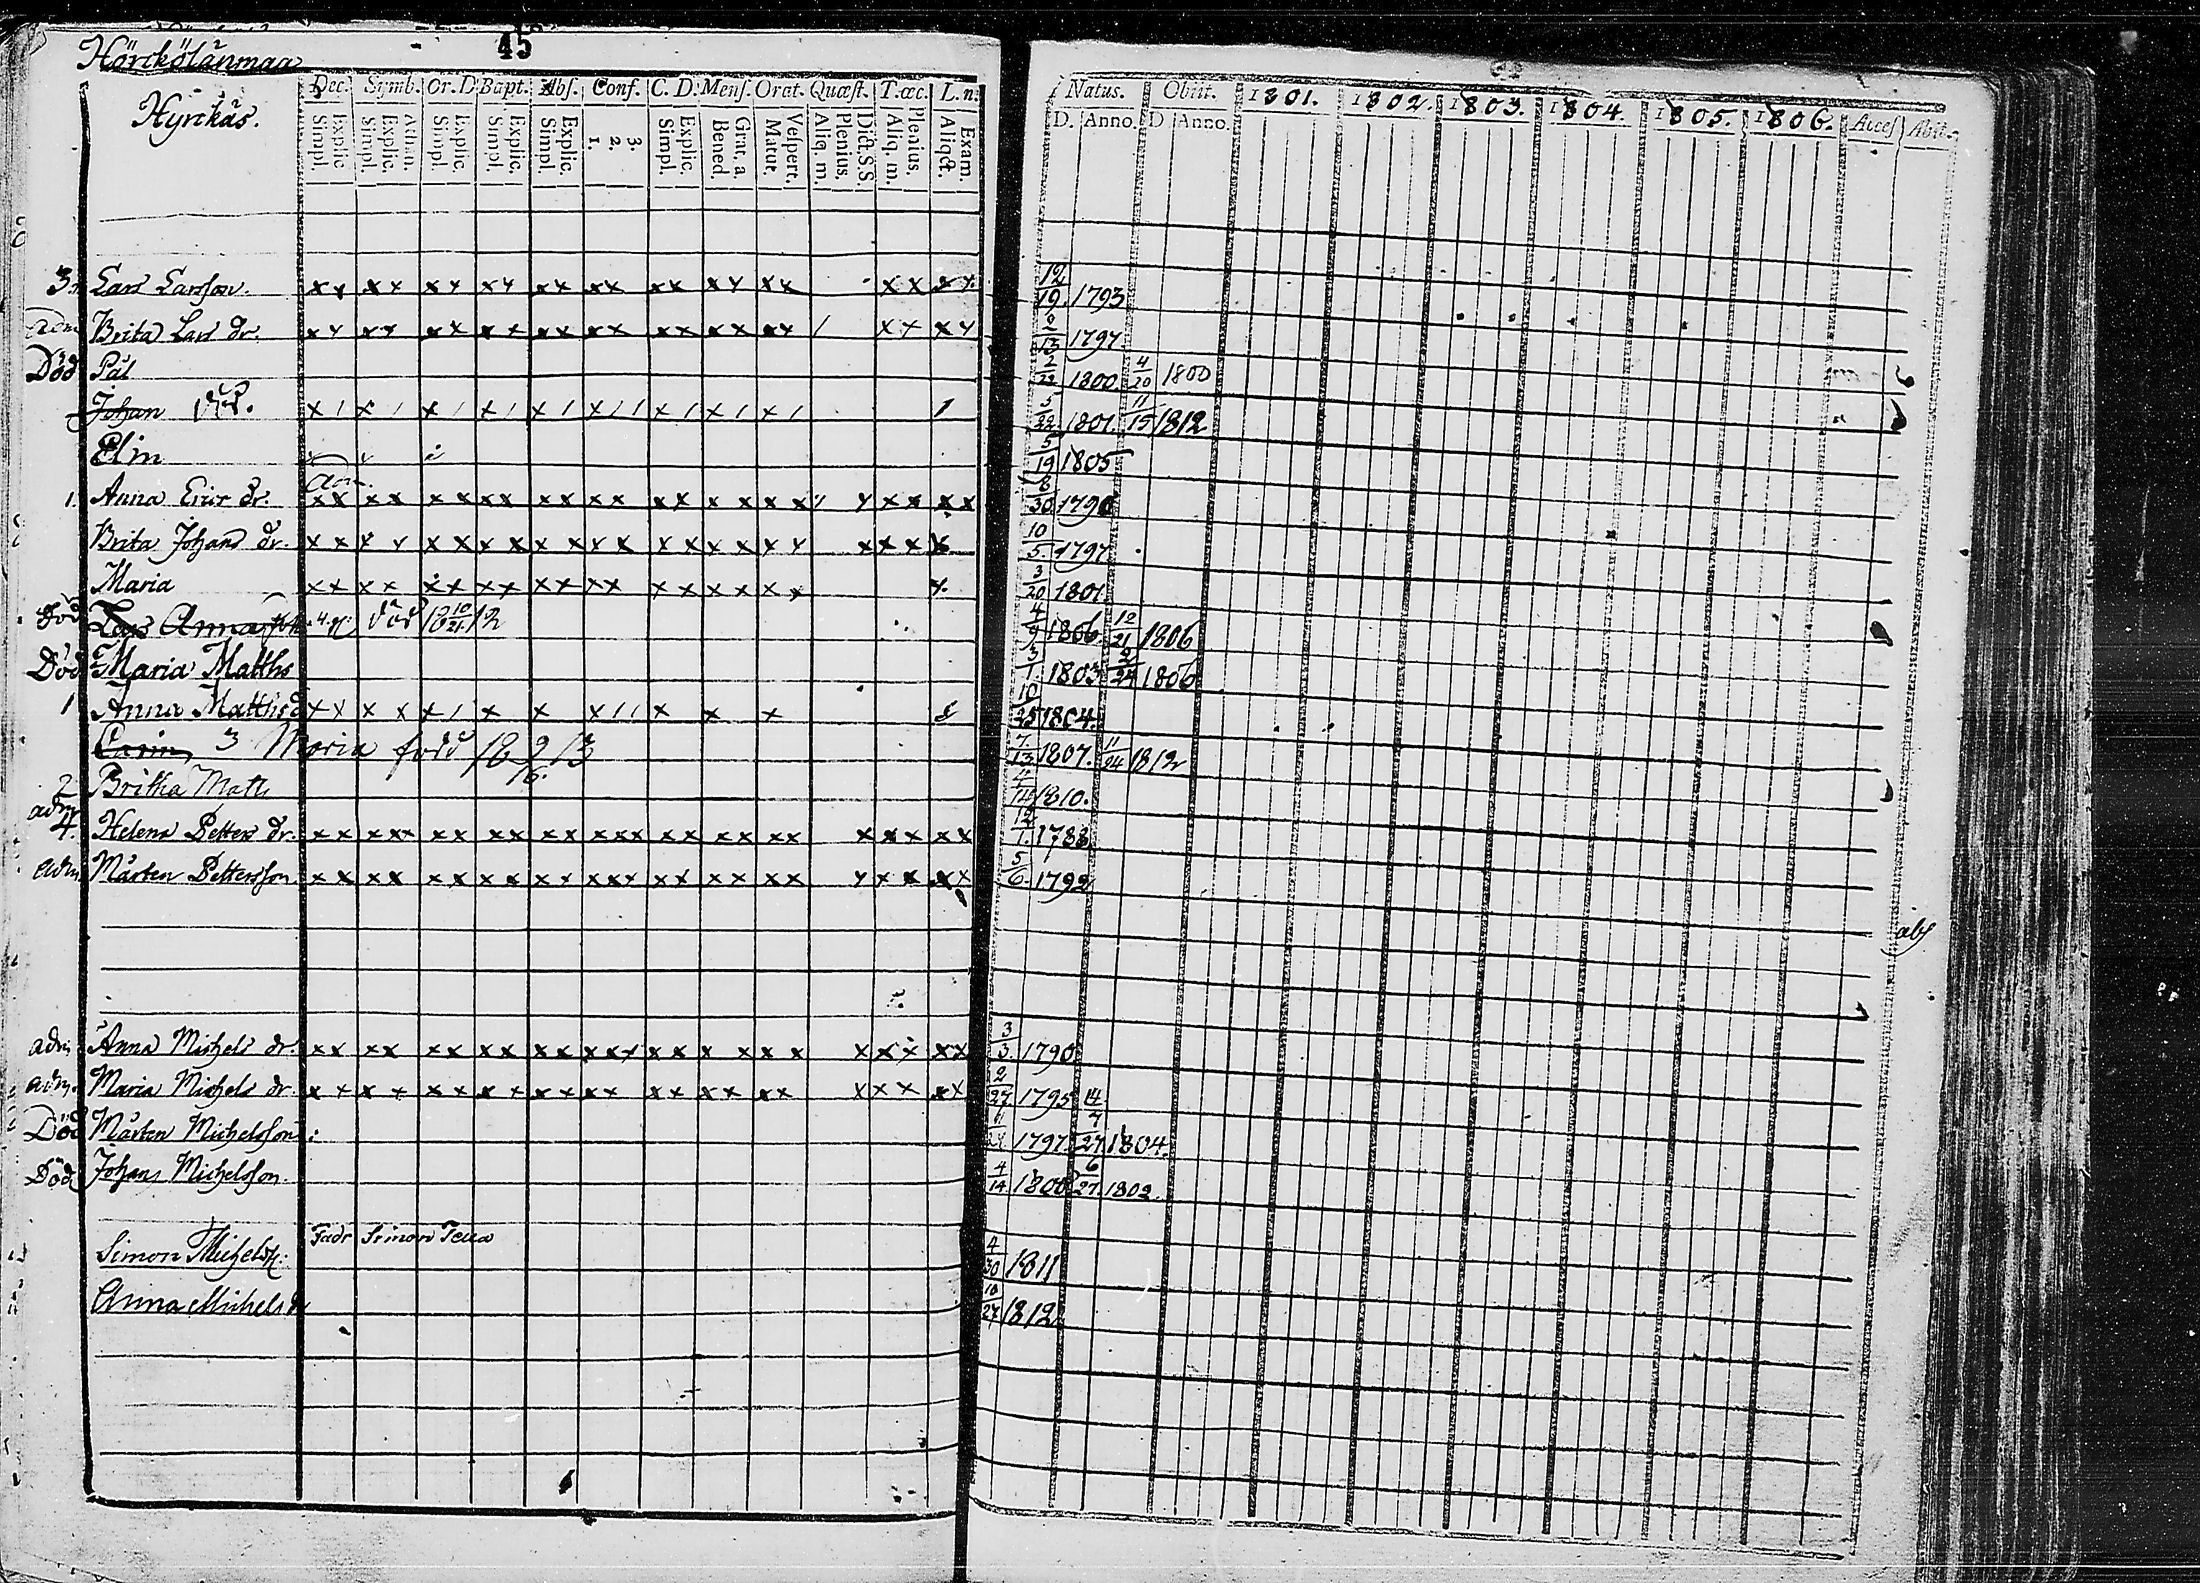 45
Hörckölänmaa
Hyrckäs.
Dec. Symb. Or. D Bapt. Abs. Conf. C. D. Mens. Orat. Quæst. T. œc. L. n.
Simpl. Explic. Simpl. Explic. Athan. Simpl. Explic. Simpl. Explic. Simpl. Explic. 1. 2. 3. Simpl. Explic. Bened. Grat. a Matut. Vespert. Aliq. m. Plenius. Dict. S. S. Aliq. m. Plenius. Aliqct. Exam.
Natus. Obiit. 1801. 1802. 1803. 1804. 1805. 1806. Acces Abit.
D. Anno. D Anno.
3. Lars Larsson. xx xx xx xx xx xx xx xx xx xx xx 12/19 1793
adm Brita Lars dr. xx xx xx xx xx xx xx xx xx / xx xx 9/13 1797.
Död Pål 2/22 1800 4/20 1800
Johan Död. x/ x/ x/ x/ x/ x// x/ x/ x/ / 3/22 1801. 11/15 1812
Elin 5/19 1805
Adm.
1. Anna Eric dr. xx xx xx xx xx xx xx xx xx xx xx 8/30 1790
Brita Johans dr. xx xx xx xx xx xx xx xx xx xxx x 10/5 1797
Maria xx xx xx xx xx xx xx xx xx x. 3/20 1801
död Lars Anna död 18 10/21 12 4/9 1806 12/21 1806
Död Maria Matths 3/1 1803 9/24 1806
1 Anna Matths d xx xx x/ x x x// x x x 10/25 1804.
Carin 3 Maria född 18 9/16 13 7/13 1807. 11/24 1812
2 Britha Matts 4/14 1810.
adm
4. Helena Petters dr. xx xxx xx xx xx xxx xx xx xx xxx xx 12/1. 1788
adm Mårten Pettersson xx xx xx xx xx xxx xx xx xx xxx xx 5/6. 1792
abs
adm Anna Michels dr. xx xx xx xx xx xxx xx xx xx xxx xx 3/3. 1790
adm. Maria Michels dr. xx xx xx xx xx xx xx xx xx xxx xx 2/27 1795
Död Mårten Michelsson 1797. 7/27 1804.
Död Johans Michelsson. 4/14 1800 6/27 1802.
Fadr
Simon Michelss: 4/30 1811
Anna Michels dr 10/27 1812